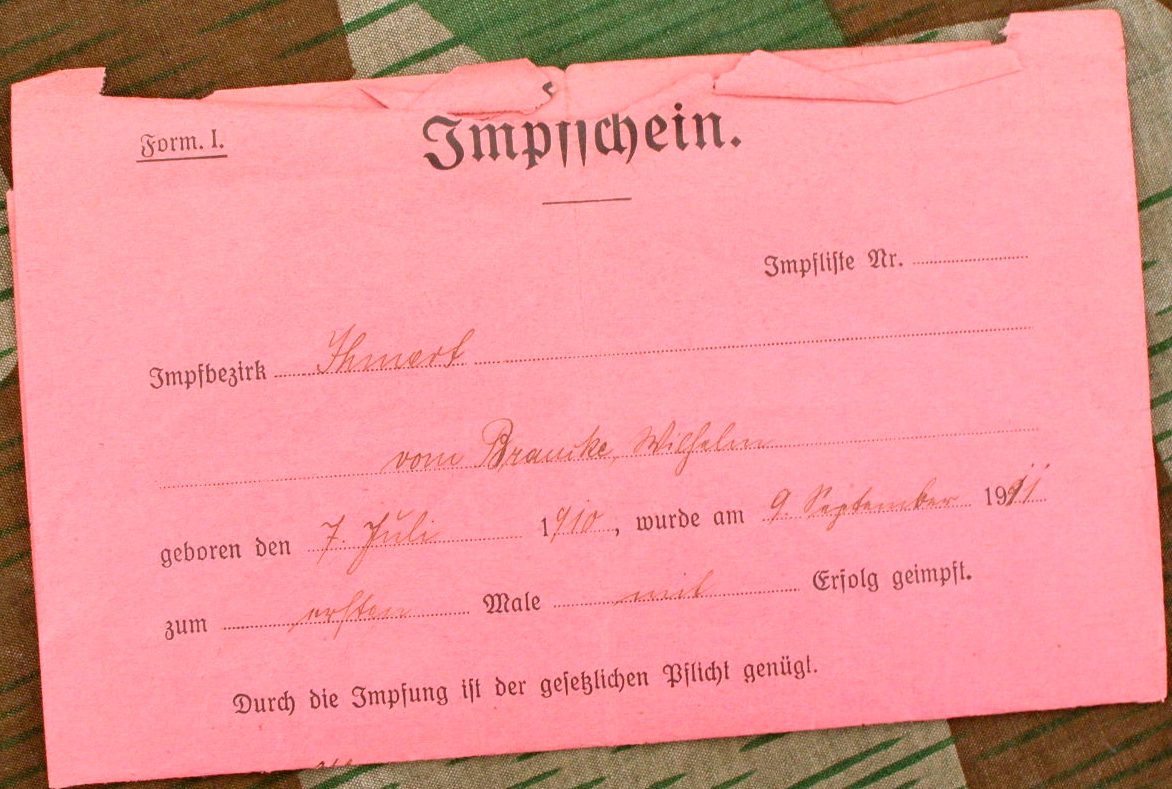 Form. I.
Impfschein.
Impfliste Nr.
Impfbezirk Ihmert
vom Braucke, Wilhelm
geboren den 7. Juli 1910, wurde am 9. September 1911
zum ersten Male mit Erfolg geimpft.
Durch die Impfung ist der gesetzlichen Pflicht genügt.